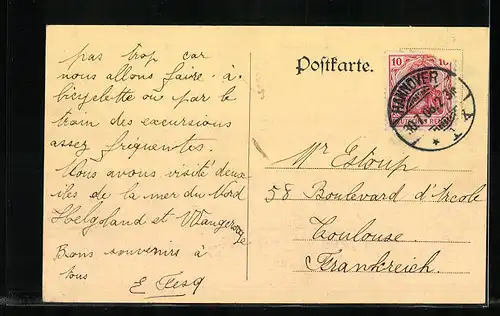 pas trop car
nous allons faire à
bicyclette ou par le
train des excursions
assez fréquentes.
Nous avons visité deux
iles de la mer du Nord
Helgoland et Wangeroog
Bons souvenirs à
tous
E
Postkarte.
10
HANNOVER
Mr Estoup
58 Boulevard d'Arcole
Toulouse.
Frankreich.